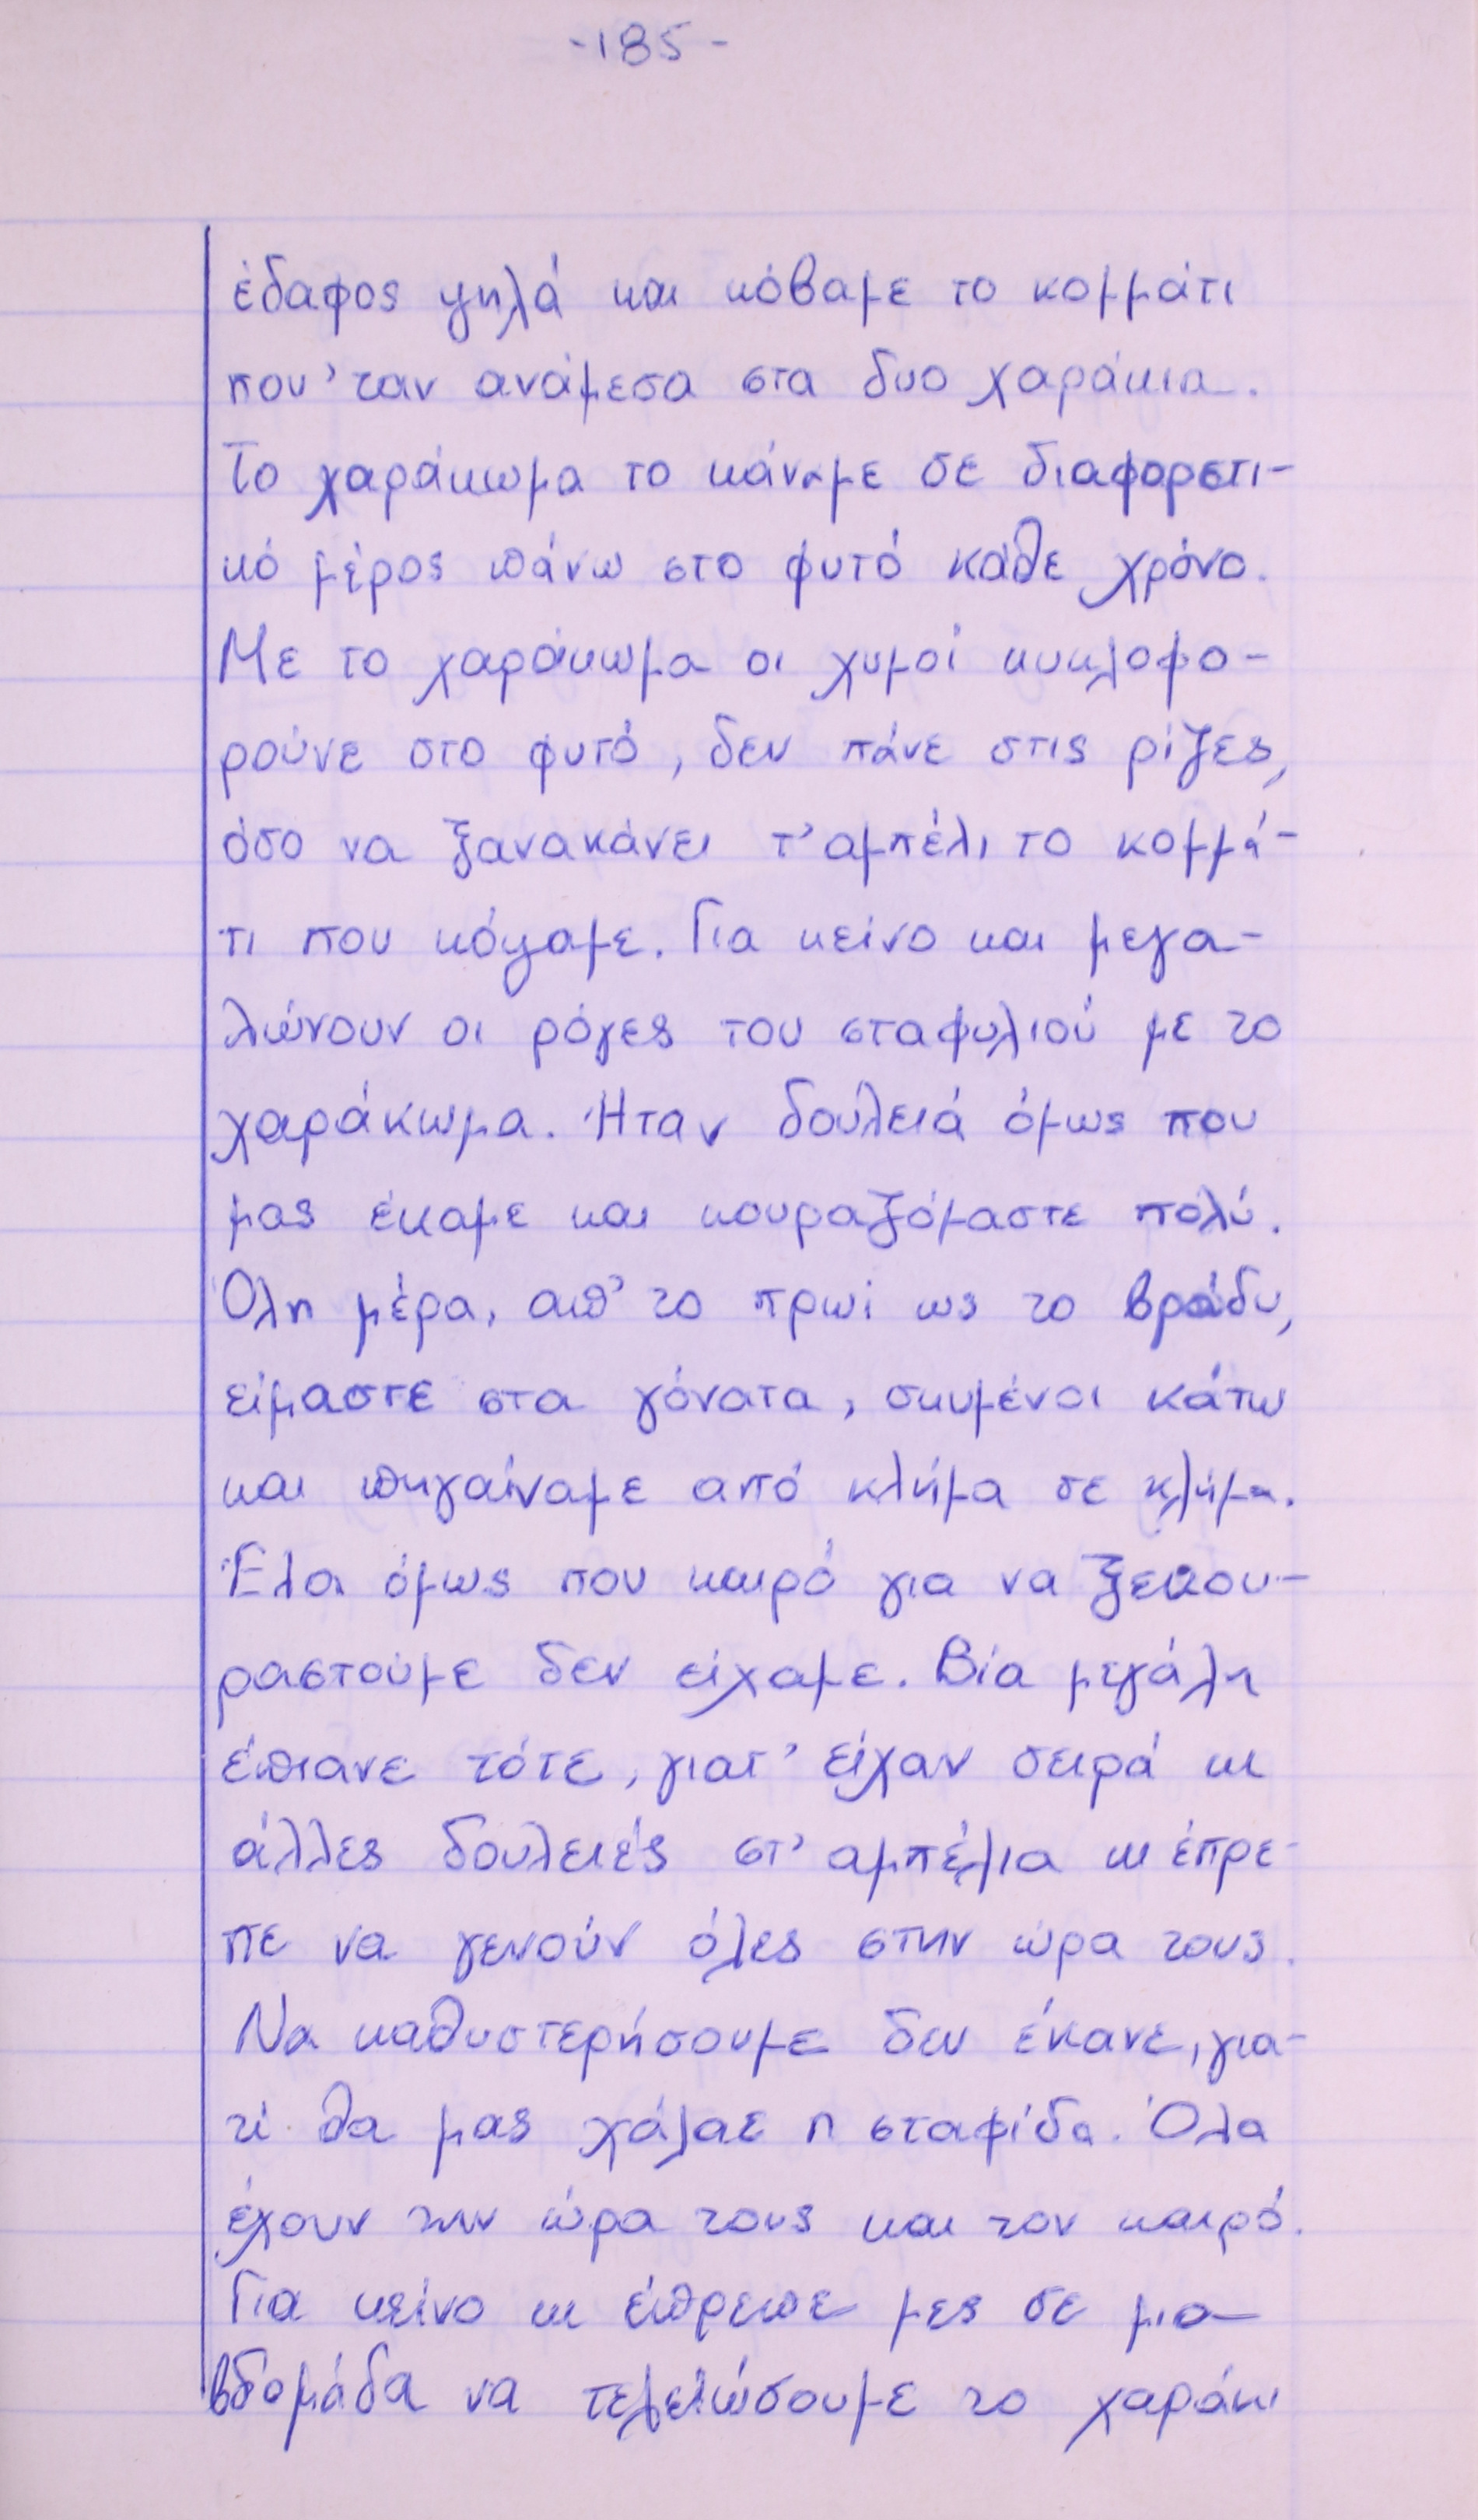 -185-
έδαφος ψηλά και κόβαμε το κομμάτι
που 'ταν ανάμεσα στα δυο χαράκια.
Το χαράκωμα το κάναμε σε διαφορετι-
κό μέρος πάνω στο φυτό κάθε χρόνο.
Με το χαράκωμα οι χυμοί κυκλοφο-
ρούνε στο φυτό, δεν πάνε στις ρίζες,
όσο να ξανακάνει τ' αμπέλι το κομμά-
τι που κόψαμε. Για κείνο και μεγα-
λιώνουν οι ρόγες του σταφυλιού με το
χαράκωμα. Ήταν δουλειά όμως που
μας έκαμε και κουραζόμαστε πολύ.
Όλη μέρα, απ' το πρωί ως το βράδυ,
είμαστε στα γόνατα, σκυμένοι κάτω
και πηγαίναμε από κλήμα σε κλήμα.
Έλα όμως που καιρό για να ξεκου-
ραστούμε δεν είχαμε. Βία μεγάλη
έπιανε τότε, γιατ' είχαν σειρά κι
άλλες δουλειές στ' αμπέλια κι έπρε-
πε να γενούν όλες στην ώρα τους.
Να καθυστερήσουμε δεν έκανε, για-
τί θα μας χάλαε η σταφίδα. Όλα
έχουν την ώρα τους και τον καιρό.
Για κείνο κι έπρεπε μες σε μια
βδομάδα να τελειώσουμε το χαράκι